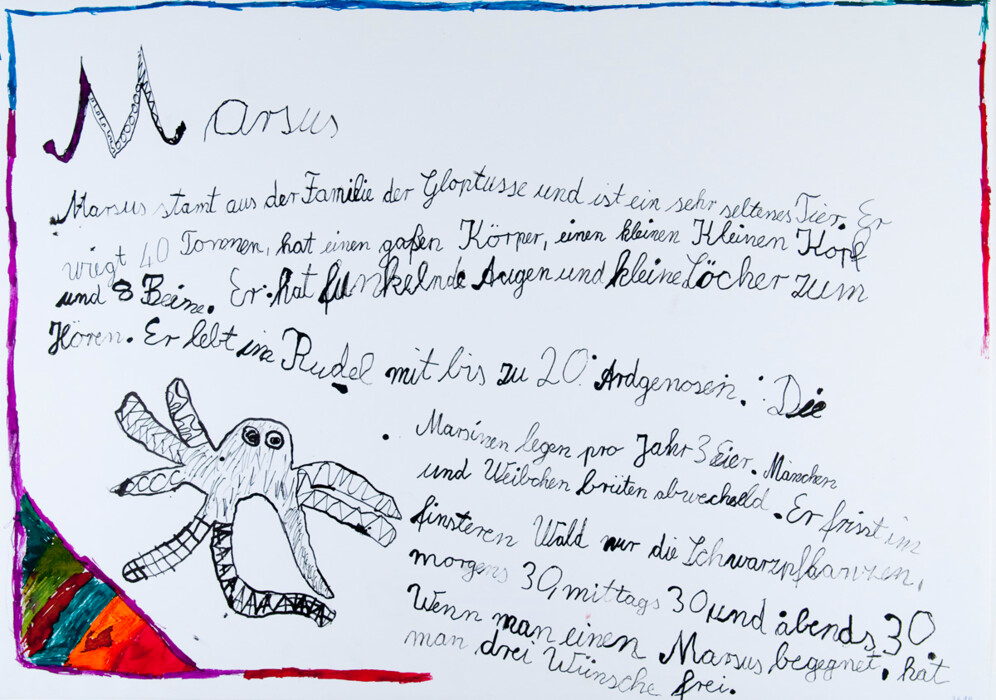 Marsus
Marsus stamt aus der Familie der Gloptusse und ist ein sehr seltenes Tier. Er
wiegt 40 Tonnen, hat einen gaßen Körper, einen kleinen Kleinen Kopf
und 8 Beine. Er hat funkelnde Augen und kleine Löcher zum
Hören. Er lebt im Rudel mit bis zu 20 Ardgenosen. Die
Marsinen legen pro Jahr 3 Eier. Mänchen
und Weibchen brüten abwechelld. Er frisst im
finsteren Wald nur die Schwarzpflanzen,
morgens 30, mittags 30 und abends 30.
Wenn man einen Marsus begegnet, hat
man drei Wünsche frei.